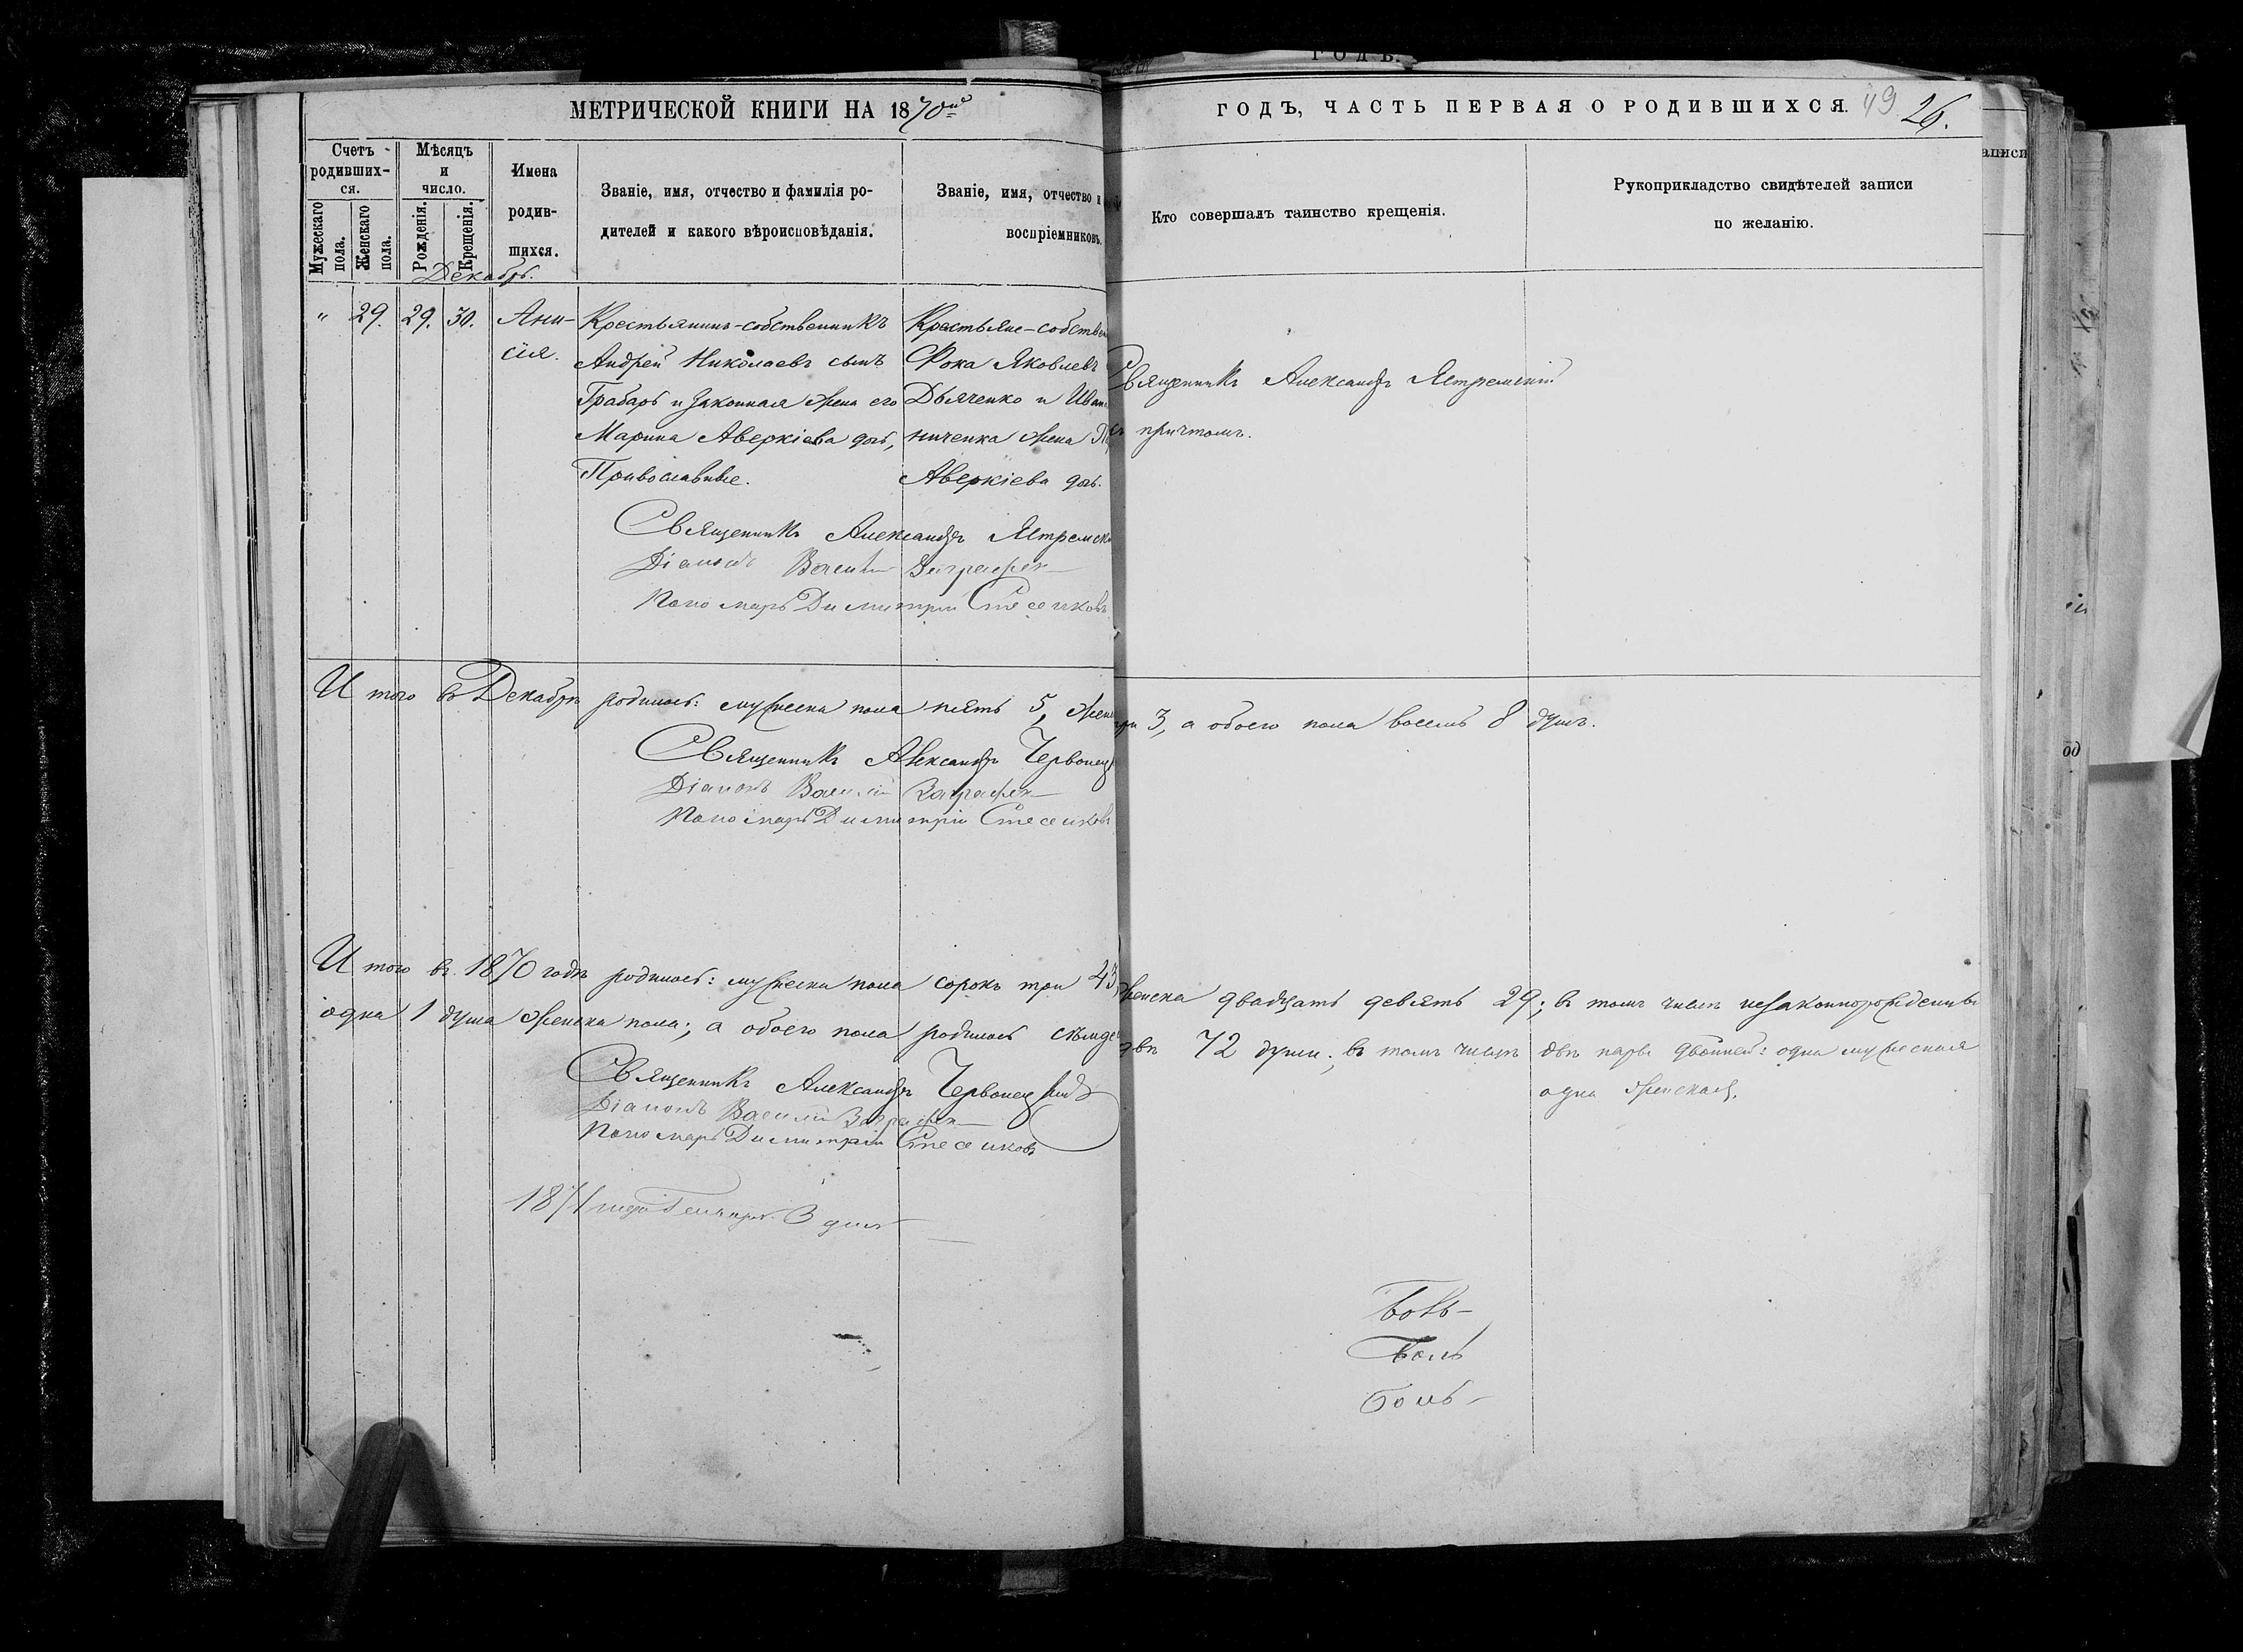 МЕТРИЧЕСКОЙ КНИГИ НА 1870й
ГОДЪ, ЧАСТЬ ПЕРВАЯ О РОДИВШИХСЯ. 49 26.
Счетъ родивших-ся.
Мужескаго пола.
Женскаго пола.
Мѣсяцъ и число.
Рожденія.
Крещенія.
Имена родив-шихся.
Званіе, имя, отчество и фамилія ро-
дителей и какого вѣроисповѣданія.
Званіе, имя, отчество и
воспріемниковъ.
Кто совершалъ таинство крещенія.
Рукоприкладство свидѣтелей записи
по желанію.
Декабрь.
" 29. 29. 30.
Ани-
сія.
Крестьянинъ-собственникъ
Андрей Николаевъ сынъ
Грабарь и законная жена его
Марина Аверкіева дочь,
Православные.
Крестьяне-собствен
Фока Яковлевъ
Дьяченко и Иван
ниченка жена
Аверкіева дочь.
Священникъ Александръ Ястремскій
съ причтомъ.
Священникъ Александръ Ястремскі
Діаконъ
Пономарь Димитрій
И того въ Декабрѣ родилось: мужеска пола пять 5, женс три 3, а обоего пола восемь 8 душъ.
Священникъ Александръ Червонец
Діаконъ Василій
Пономарь Димитрій
И того въ 1870 годѣ родилось: мужеска пола сорокъ три 43, женска двадцать девять 29; въ томъ числѣ незаконнорожденны
одна 1 душа женска пола; а обоего пола родилось семьде двѣ 72 души; въ томъ числѣ двѣ пары двойней: одна мужеская
одна женская.
Священникъ Александръ Червонецкій
Діаконъ Василій
Пономарь Димитрій
1871 года Генваря 3 дня